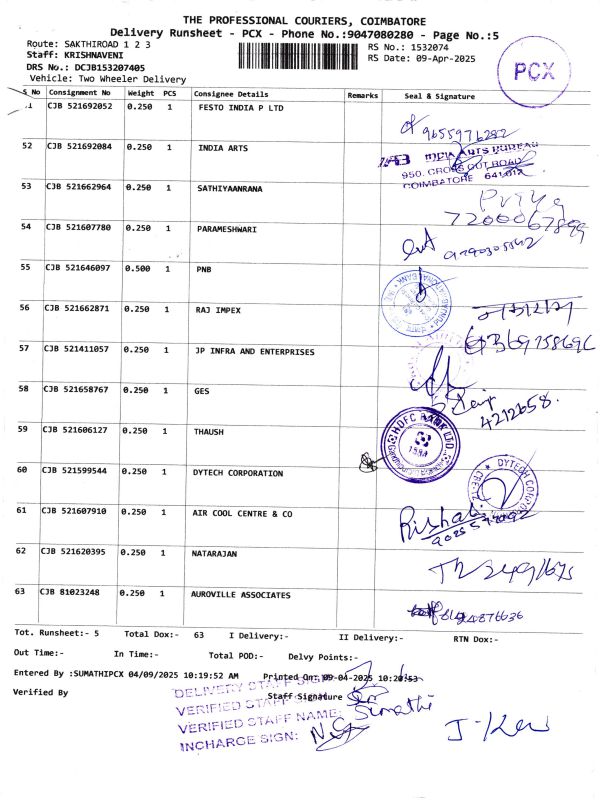 THE PROFESSIONAL COURIERS, COIMBATORE
Delivery Runsheet - PCX - Phone No.:9047080280 - Page No.:5
Route: SAKTHIROAD 1 2 3
RS No.: 1532074
Staff: KRISHNAVENI
RS Date: 09-Apr-2025
DRS No.: DCJB153207405
Vehicle: Two Wheeler Delivery
PCX
S No Consignment No Weight PCS Consignee Details Remarks Seal & Signature
1 CJB 521692052 0.250 1 FESTO INDIA P LTD
9655976282
52 CJB 521692084 0.250 1 INDIA ARTS
INDIA ARTS BUREAU
950, CROSS CUT ROAD
COIMBATORE 641 012
53 CJB 521662964 0.250 1 SATHIYAANRANA
Priya
7200067899
54 CJB 521607780 0.250 1 PARAMESHWARI
55 CJB 521646097 0.500 1 PNB
56 CJB 521662871 0.250 1 RAJ IMPEX
57 CJB 521411057 0.250 1 JP INFRA AND ENTERPRISES
58 CJB 521658767 0.250 1 GES
4212658.
59 CJB 521606127 0.250 1 THAUSH
HDFC BANK LTD.
60 CJB 521599544 0.250 1 DYTECH CORPORATION
DYTECH CORPO
61 CJB 521607910 0.250 1 AIR COOL CENTRE & CO
Rishab
62 CJB 521620395 0.250 1 NATARAJAN
63 CJB 81023248 0.250 1 AUROVILLE ASSOCIATES
Tot. Runsheet:- 5 Total Dox:- 63 I Delivery:- II Delivery:- RTN Dox:-
Out Time:- In Time:- Total POD:- Delvy Points:-
Entered By :SUMATHIPCX 04/09/2025 10:19:52 AM Printed On: 09-04-2025 10:20:53
Verified By
Staff Signature
DELIVERY STAFF SIGN
VERIFIED STAFF SIGN
VERIFIED STAFF NAME: Sumathi
INCHARGE SIGN: